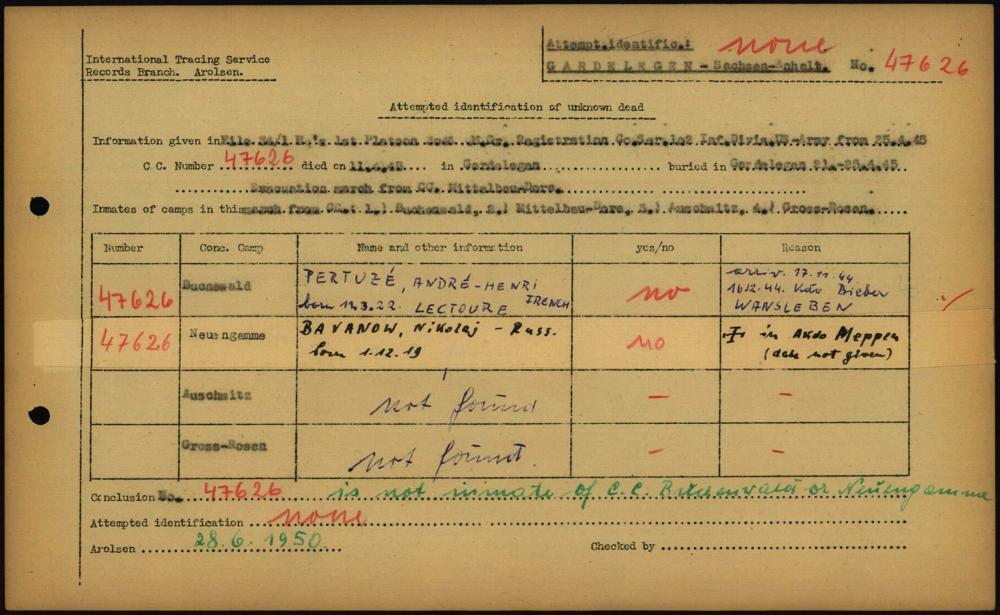 International Tracing Service
Records Branch. Arolsen.
Attempt.identific.: none
GARDELEGEN - Sachsen-Anhalt. No. 47626
Attempted identification of unknown dead
Information given in File 34/1 H.'s 1st.Platoon 3045. M.Gr. Registration Co.Ser.102 Inf.Divis.US-Army from 25.4.45
C.C. Number 47626 died on 11.4.45 in Gardelegen buried in Gardelegen 21.-25.4.45
Evacuation march from CC. Mittelbau-Dora.
Inmates of camps in this march from CC.: 1.) Buchenwald, 2.) Mittelbau-Dora, 3.) Auschwitz, 4.) Gross-Rosen.
Number Conc. Camp Name and other information yes/no Reason
47626 Buchenwald PERTUZÉ, ANDRÉ-HENRI born 12.3.22. LECTOURE FRENCH no arriv. 17.11.44 16.12.44. Kdo Bieber WANSLEBEN
47626 Neuengamme BAVANOW, Nikolaj - Russ. born 1.12.19 no in Akdo Meppen (date not given)
Auschwitz not found — —
Gross-Rosen not found. — —
Conclusion No. 47626 is not inmate of C.C. Buchenwald or Neuengamme
Attempted identification none
Arolsen 28.6.1950 Checked by